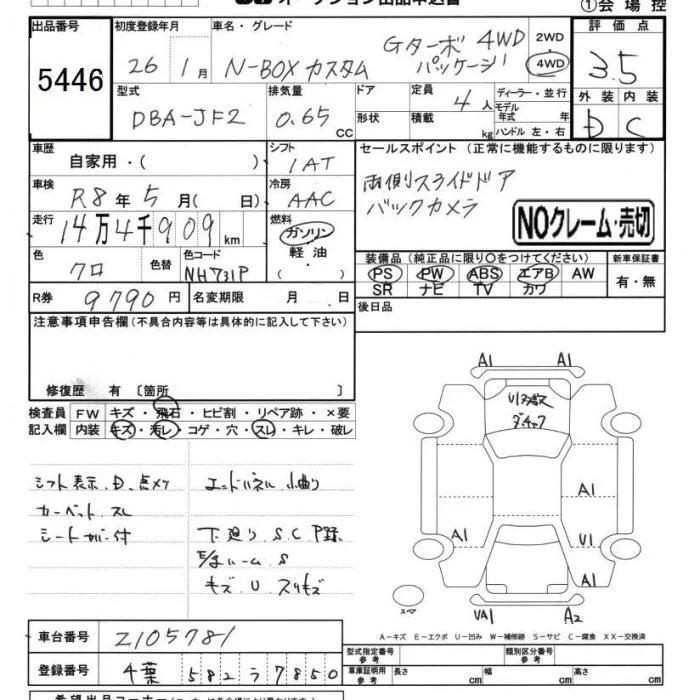 ①会場控
出品番号
5446
初度登録年月
26年1月
車名・グレード
N-BOXカスタム
Gターボ 4WD
パッケージ
2WD
4WD
評価点
3.5
外装 内装
D C
型式
DBA-JF2
排気量
0.65 CC
ドア
形状
定員
4人
積載
kg
ディーラー・並行
モデル年式 年
ハンドル 左・右
車歴
自家用・( )
シフト
IAT
セールスポイント (正常に機能するものに限ります)
両側スライドドア
バックカメラ
NOクレーム・売切
車検
R8年5月( 日)
冷房
AAC
走行
14万4千909km
燃料
ガソリン
軽油
・
色
クロ
色替
色コード
NH731P
装備品(純正品に限り○をつけてください)
PS PW ABS エアB AW
SR ナビ TV カワ
新車保証書
有・無
R券
9790円
名変期限 月 日
後日品
注意事項申告欄(不具合内容等は具体的に記入して下さい)
修復歴 有 〔箇所 〕
検査員 FW キズ・飛石・ヒビ割・リペア跡・×要
記入欄 内装 キズ・汚レ・コゲ・穴・スレ・キレ・破レ
シフト表示.D.点メツ
カーペット.スレ
シートカバー付
エンドパネル小曲り
下廻り.S.C
キズ.U.スリキズ
A1
A1
A1
A1
U1
A1
A1
UA1
A2
スペア
A-キズ E-エクボ U-凹み W-補修跡 S-サビ C-腐食 XX-交換済
車台番号
2105781
登録番号
千葉 582 ラ 7850
型式指定番号
参考
類別区分番号
参考
車庫証明用
参考
長さ cm 幅 cm 高さ cm